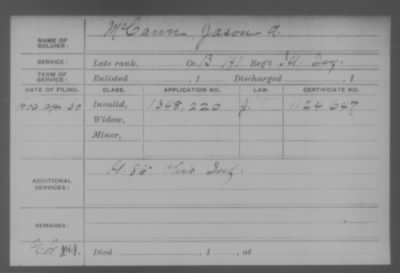 NAME OF SOLDIER: McCann, Jason A.
SERVICE: Late rank, Co. B 191 Reg't Ill. Inf.
TERM OF SERVICE: Enlisted , 1 Discharged , 1
DATE OF FILING. CLASS. APPLICATION NO. LAW. CERTIFICATE NO.
1906 Apr. 30 Invalid, 1348,220 J. 1124647
Widow,
Minor,
ADDITIONAL SERVICES: 86" Ohio Inf.
REMARKS:
Died , 1 , at